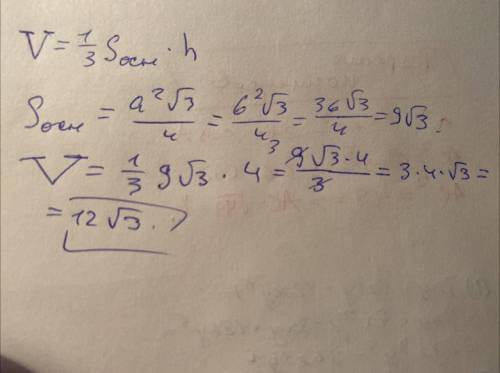 V = 1/3 Sосн · h
Sосн = a²√3/4 = 6²√3/4 = 36√3/4 = 9√3.
V = 1/3 9√3 · 4 = 9√3·4/3 = 3·4·√3 =
= 12√3.